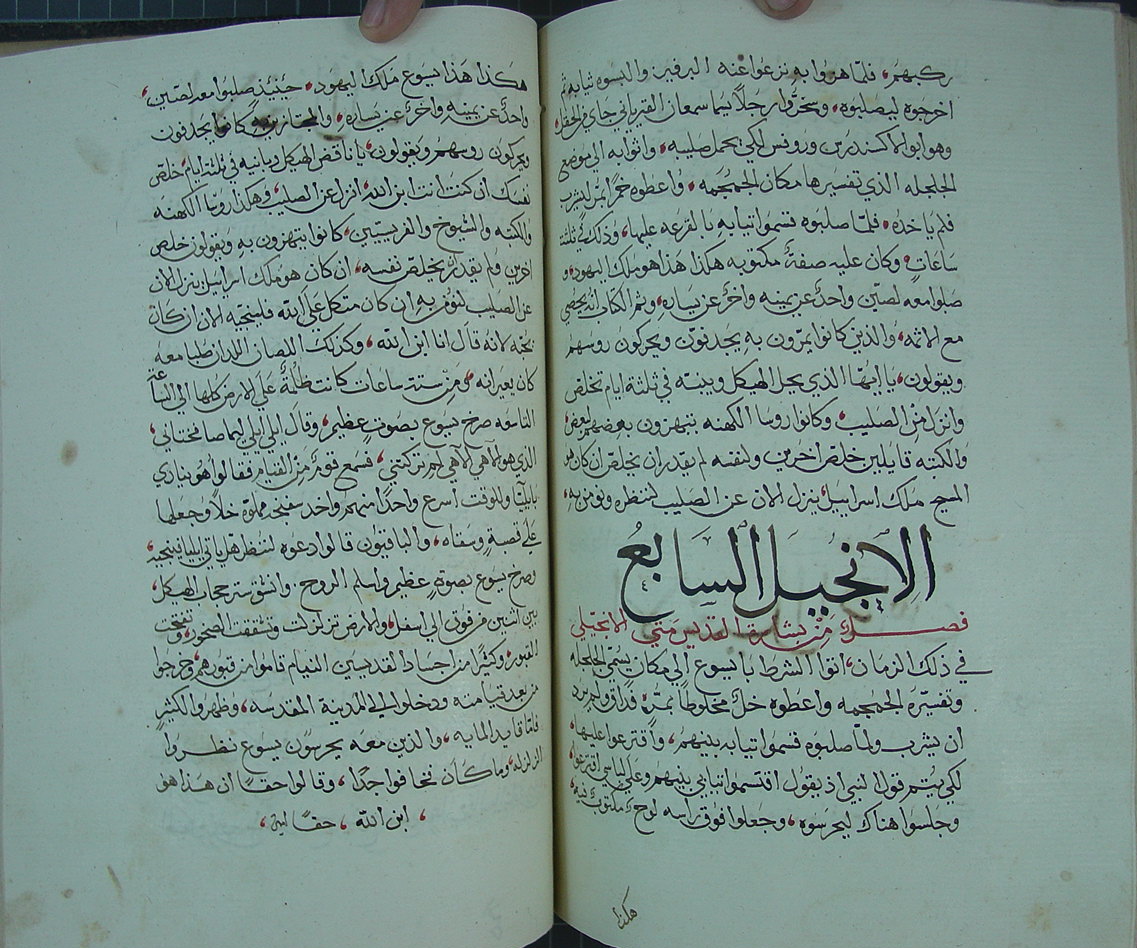 ركبهم، فلمّا هزوا به نزعوا عنه البرفير والبسوه ثيابه ثم
اخرجوه ليصلبوه، وسخّروا رجلًا يسما سمعان القيرياني جاي من الحقل،
وهو ابو الاكسندرس وروفس لكي يحمل صليبه، واتوا به الى موضع
الجلجله الذي تفسيرها مكان الجمجمه، واعطوه خمرًا بمرّ ليشرب
فلم ياخذه، فلمّا صلبوه قسموا تيابه بالقرعه عليها، وذلك في ثلثة
ساعات، وكان عليه صفة مكتوبه هكذا هذا هو ملك اليهود، و
صلبوا معه لصّين واحدٌ عن يمينه واخرٌ عن يساره، وتم الكتاب انه يحصي
مع الاثمه، والذين كانوا يمرّون به يجدفون ويحركون روسهم
ويقولون، يا ايهّا الذي يحل الهيكل ويبنيه في ثلثة ايام تخلص
وانزل من الصليب، وكانوا روسا الكهنه يتهزون بعضهم لبعض،
والكتبه قايلين خلّص اخرين ونفسه لم يقدر ان يخلص ان كان هو
المسيح ملك اسراييل ينزل الان عن الصليب لننظره ونومن به،
الانجيل السابع
فصل من بشارة القديس متي الانجيلي
في ذلك الزمان، اتوا الشرط بايسوع الي مكان يسمّي الجلجله
وتفسيره الجمجمه واعطوه خلٌ مخلوطًا بمرّه فذاق ولم يرد
ان يشرب ولمّا صلبوه قسموا تيابه بينهم، واقترعوا عليها،
لكي يتمّ قول النبي اذ يقول اقتسموا تيابي بينهم وعلي لباسي اقترعوا،
وجلسوا هناك ليحرسوه، وجعلوا فوق راسه لوحٌ مكتوبٌ فيه،
هكذا
هكذا هذا يسوع ملك اليهود، حينيذٍ صلبوا معه لصّين،
واحدٌ عن يمينه واخرٌ عن يساره، والمجتازين به كانوا يجدفون
ويحركون روسهم ويقولون، يا ناقض الهيكل وبانيه في ثلثة ايام، خلص
نفسك ان كنت انت ابن الله، انزل عن الصليب، وهكذا روسا الكهنه
والكتبه والشيوخ والفريسيّين، كانوا يتهزون به ويقولون خلص
اخرين ولم يقدر ان يخلّص نفسه، ان كان هو ملك اسراييل ينزل الان
عن الصليب لنومن به، ان كان متكل علي الله فلينجيه الان ان كان
يحبّه لانه قال انا ابن الله، وكذلك اللصان اللذان صُلبا معه
كان يعيرانه، ومن ستة ساعات كانت ظلمةٌ علي الارض كلها الي الساعة
التاسعه صرخ يسوع بصوتٍ عظيم، وقال ايلي ايلي ليما صافختاني
الذي هو الاهي الاهي لم تركتني، فسمع قومٌ من القيام فقالوا هو ينادي
بايليّا وللوقت اسرع واحدًا منهم واخذ سفنجه مملوّه خلًا وجعلها
علي قصبةٍ وسقاه، والباقيون قالوا دعوه لننظر هل ياتي ايليا فينجيه،
وصرخ يسوع بصوتٍ عظيم واسلم الروح، وانشق ستر حجاب الهيكل،
بين اثنين من فوق الي اسفل، والارض تزلزلت وتشققت الصخور، وتفتحت
القبور، وكثيرًا من اجساد القديسين النيام قاموا من قبورهم، وخرجوا
من بعد قيامته ودخلوا الي المدينة المقدسه، وظهروا لكثيرٍ
فامّا قايد المايه، والذين معه يحرسون يسوع نظروا
الزلزله، وما كان فخافوا جدًا، وقالوا حقًا ان هذا هو
، ابن الله ، حقًا